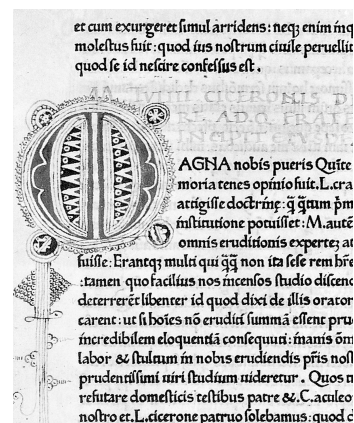 et cum exurgeret simul arridens: neq; enim inq
molestus fuit: quod ius nostrum ciuile peruellit
quod se id nescire confessus est.
M. TVLLII CICERONIS D
RI. AD. Q. FRATR
INCIPIT
MAGNA nobis pueris Quīte
moria tenes opinio fuit. L. cra
attigisse doctrinę: q̄ q̄tum pm
institutione potuisset: M. autē
omnis eruditionis expertē at
fuisse: Erantq; multi qui q̄q̄ non ita sese rem hr̄e
: tamen quo facilius nos incensos studio discend
deterrerēt libenter id quod dixi de illis orator
carent: ut si hoīes nō eruditi summā essent pru
incredibilem eloquentiā consequuti: inanis ōm
labor & stultum in nobis erudiendis pr̄is nost
prudentissimi uiri studium uideretur. Quos tū
refutare domesticis testibus patre & .C. aculeo
nostro et .L. cicerone patruo solebamus: quod d